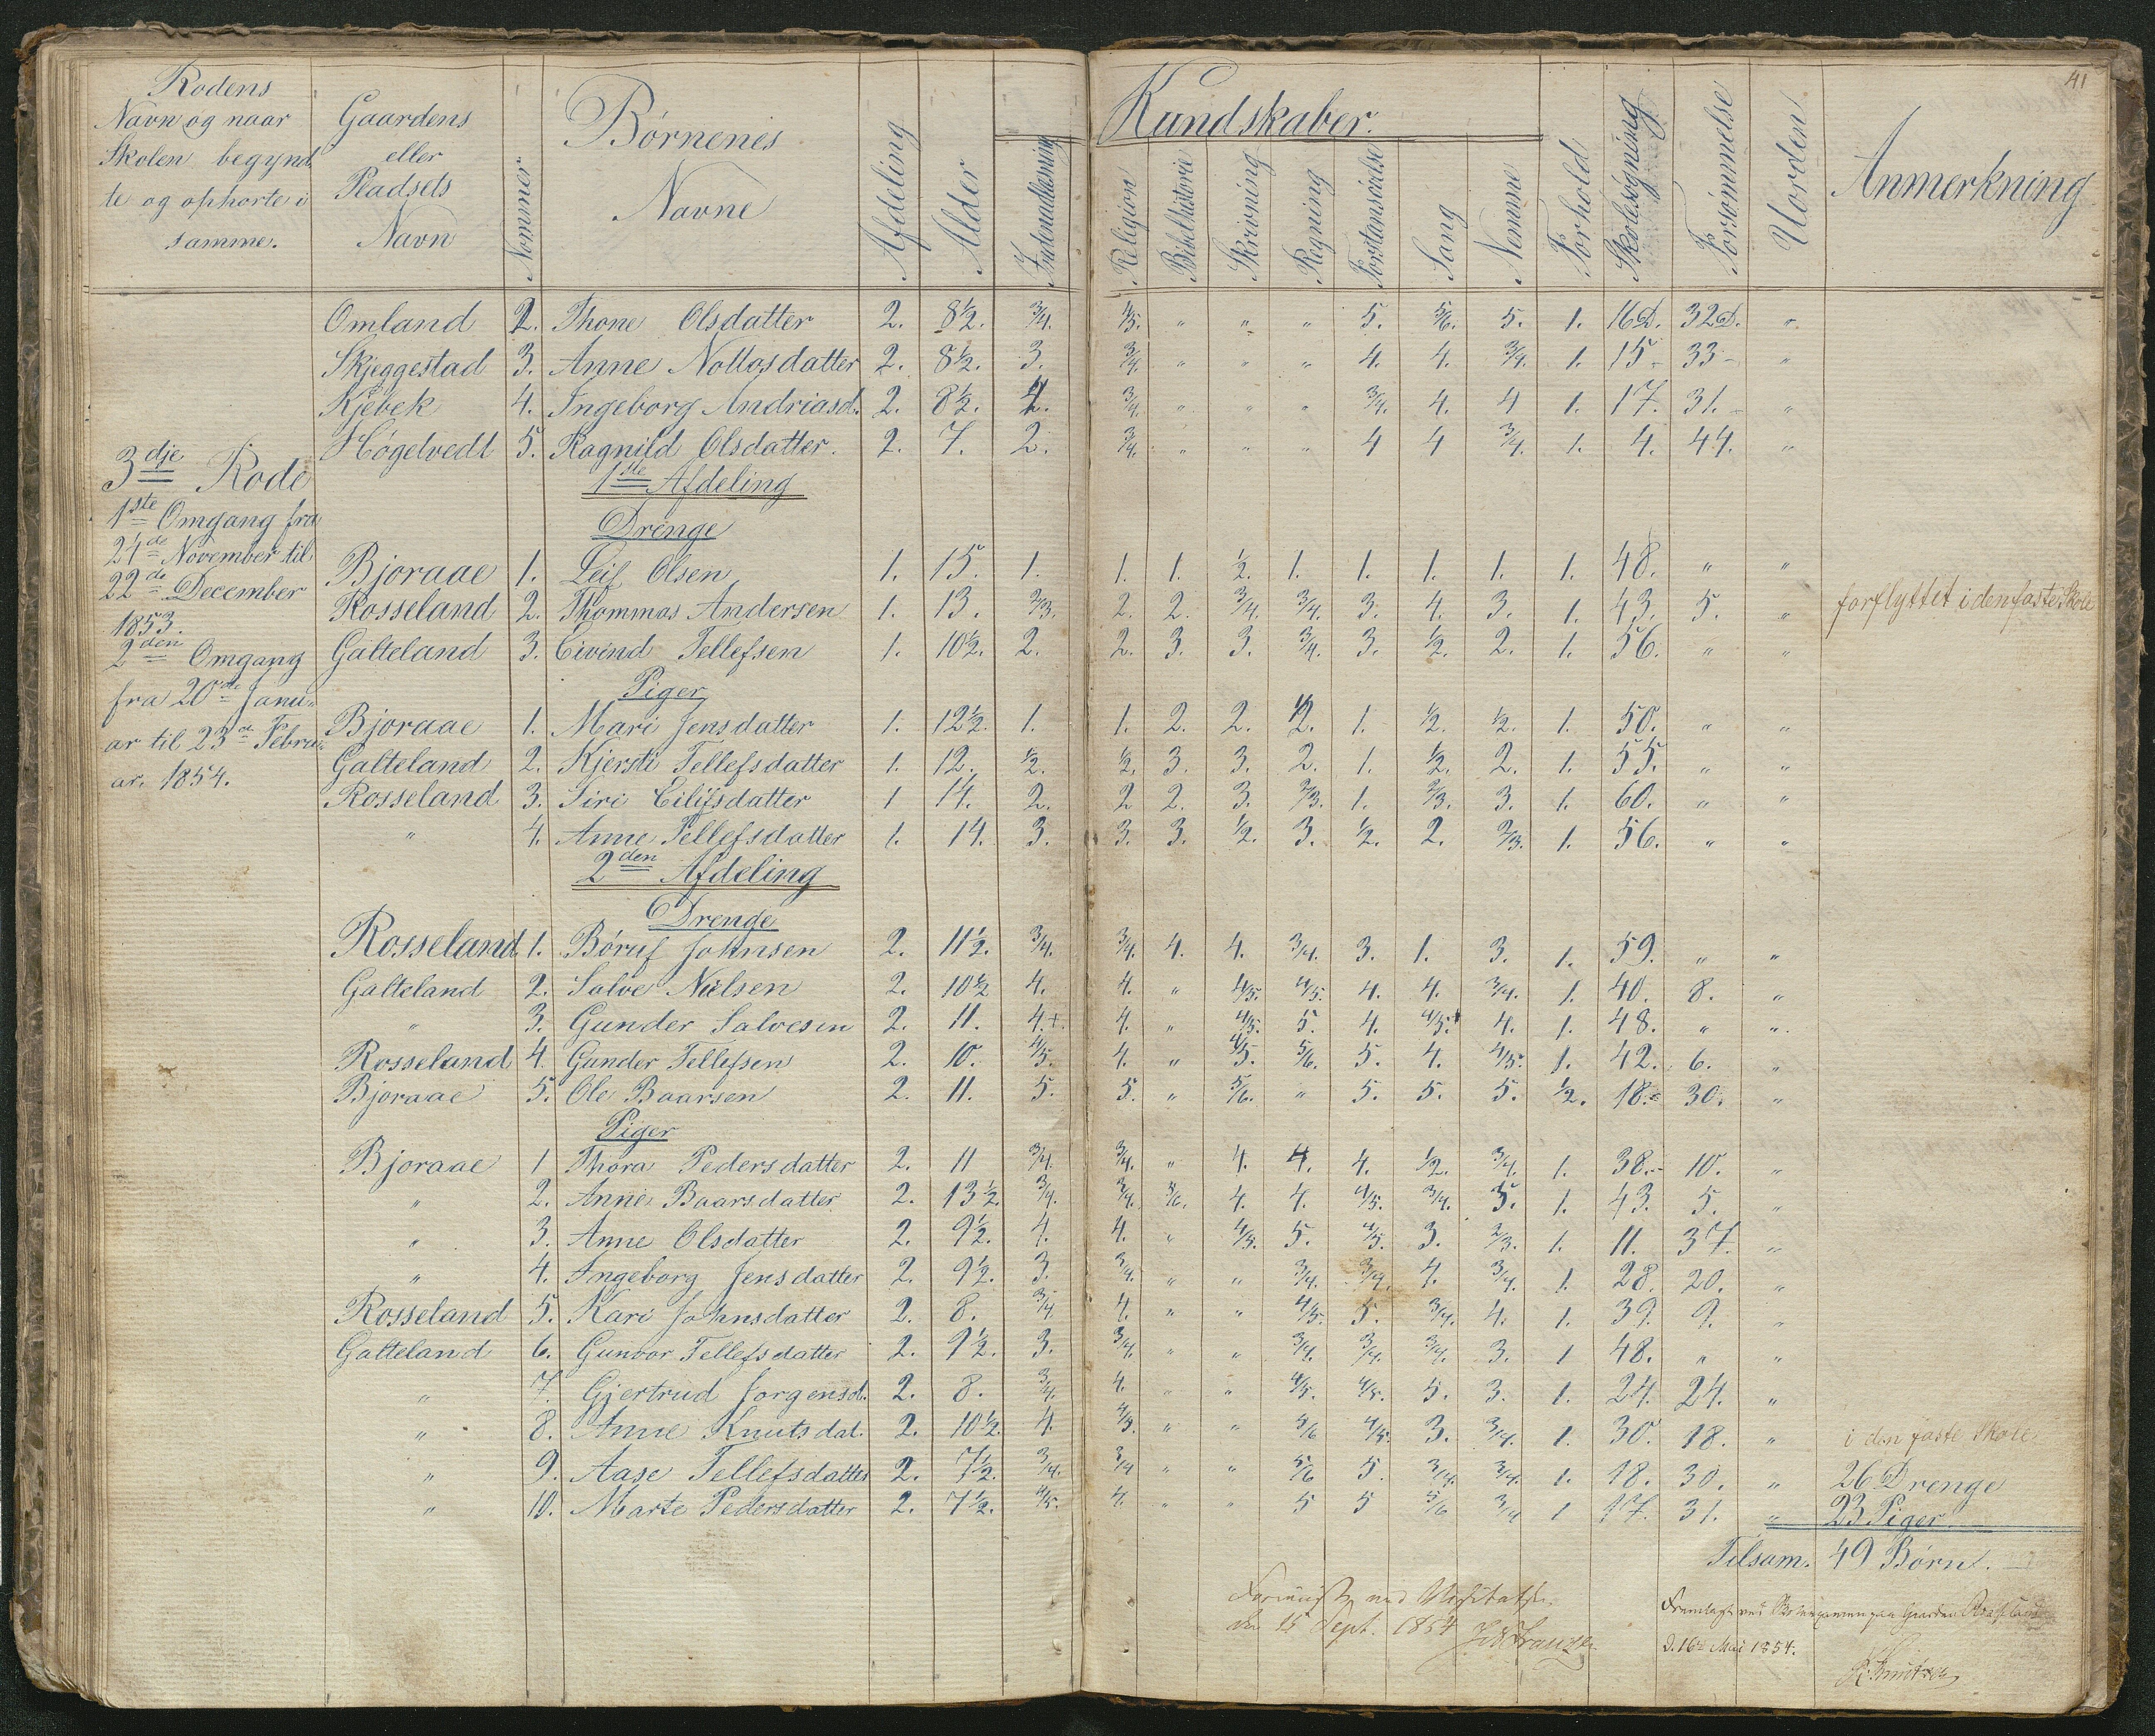 41
Rodens
Navn og naar
Skolen begynd
te og ophørte i
samme.
Gaardens
eller
Pladsets
Navn
Nommer
Børnenes
Navne
Afdeling
Alder
Indenadlæsning
Kundskaber.
Religion
Bibelhistorie
Skrivning
Regning
Forstandsøvelse
Sang
Nemme
Forhold
Skolesøgning
Forsømmelse
Uorden
Anmerkning
Omland 2. Thone Olsdatter 2. 8½. 3/4. 4/5. " " " 5. 5/6. 5. 1. 16D. 32D. "
Skjeggestad 3. Anne Nottosdatter 2. 8½. 3. 3/4. " " " 4. 4. 3/4. 1. 15- 33- "
Kjebek 4. Ingeborg Andriasd. 2. 8½. 4. 3/4. " " " 3/4. 4. 4 1. 17. 31.- "
Høgelvedt 5. Ragnild Olsdatter. 2. 7. 2. 3/4. " " " 4 4 3/4. 1. 4. 44. "
3dje Rode
1ste Omgang fra
24de November til
22de December
1853.
2den Omgang
fra 20de Janu-
ar til 23de Febru-
ar. 1854.
1ste Afdeling
Drenge
Bjoraae 1. Leif Olsen 1. 15. 1. 1. 1. ½. 1. 1. 1. 1. 1. 48. " "
Rosseland 2. Thommas Andersen 1. 13. 2/3. 2. 2. 3/4. 3/4. 3. 4. 3. 1. 43. 5. " forflyttet i den faste Skole
Galteland 3. Eivind Tellefsen 1. 10½. 2. 2. 3. 3. 3/4. 3. ½. 2. 1. 56. " "
Piger
Bjoraae 1. Mari Jensdatter 1. 12½. 1. 1. 2. 2. ½. 1. ½. ½. 1. 50. " "
Galteland 2. Kjersti Tellefsdatter 1. 12. ½. ½. 3. 3. 2. 1. ½. 2. 1. 55. " "
Rosseland 3. Siri Eilifsdatter 1 14. 2. 2 2. 3. 2/3. 1. 2/3. 3. 1. 60. " "
" 4. Anne Tellefsdatter 1. 14. 3. 3. 3. ½. 3. ½. 2. 2/3. 1. 56. " "
2den Afdeling
Drenge
Rosseland 1. Børuf Johnsen 2. 11½. 3/4. 3/4. 4. 4. 3/4. 3. 1. 3. 1. 59. " "
Galteland 2. Salve Nielsen 2. 10½ 4. 4. " 4/5. 4/5. 4. 4. 3/4. 1. 40. 8. "
" 3. Gunder Salvesen 2. 11. 4.+. 4. " 4/5. 5. 4. 4/5. 4. 1. 48. " "
Rosseland 4. Gunder Tellefsen 2. 10. 4/5. 4. " 4/5. 5/6. 5. 4. 4/5. 1. 42. 6. "
Bjoraae 5. Ole Baarsen 2. 11. 5. 5. " 5/6. " 5. 5. 5. ½. 18.- 30. "
Piger
Bjoraae 1 Thora Pedersdatter 2. 11 3/4. 3/4. " 4. 4. 4. ½. 3/4. 1. 38.- 10. "
" 2. Anne Baarsdatter 2. 13½. 3/4. 3/4. 5/6. 4. 4. 4/5. 3/4. 5. 1. 43. 5. "
" 3. Anne Olsdatter 2. 9½. 4. 4. " 4/5. 5. 4/5. 3. 2/3. 1. 11. 37. "
" 4. Ingeborg Jensdatter 2. 9½. 3. 3/4. " " 3/4. 3/4. 4. 3/4. 1. 28. 20. "
Rosseland 5. Kari Johnsdatter 2. 8. 3/4 4. " " 4/5. 5. 3/4. 4. 1. 39. 9. "
Galteland 6. Gunvor Tellefsdatter 2. 9½. 3. 3/4. " " 3/4. 3/4. 3/4. 3. 1 48. " "
" 7. Gjertrud Jorgensd. 2. 8. 3/4. 4. " " 4/5. 4/5. 5. 3. 1. 24. 24. "
" 8. Anne Knutsdat. 2. 10½. 4. 4/5. " " 5/6 4/5. 3. 3/4. 1. 30. 18. " i den faste Skole.
" 9. Aase Tellefsdatter 2. 7½. 3/4. 3/4 " " 5/6 5. 3/4. 3/4. 1. 18. 30. " 26 Drenge
" 10. Marte Pedersdatter 2. 7½. 4/5. 4. " " 5 5 5/6 3/4 1 17. 31. " 23 Piger
Tilsam. 49 Børn.
ved Visitatsen
den 15 Sept. 1854
Fremlagt ved Skoleexamen paa Gaarden Rosseland
d. 16de Mai 1854.
K. Knutsen